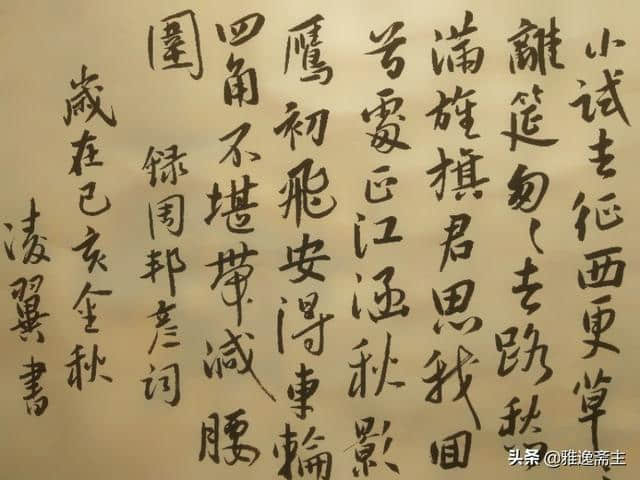 小试去征西更草
離筵匆々去路秋
满旌旗君思我回
首處正江涵秋影
鴈初飛安得車輪
四角不堪帶減腰
圍 録周邦彦词
歲在己亥金秋
凌翼書
头条 @雅逸斋主